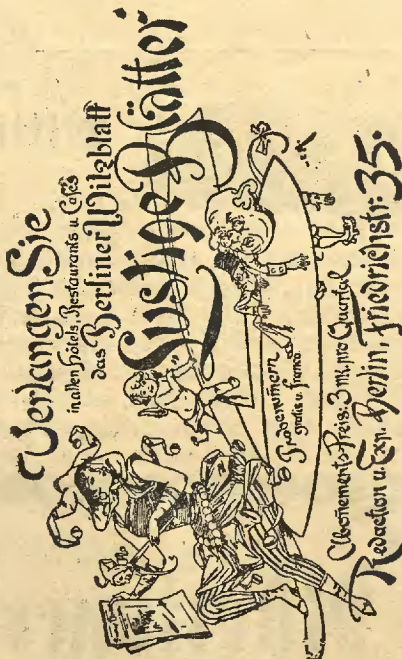 Verlangen Sie
in allen Hôtels, Restaurants u. Cafés
das Berliner Witzblatt
Lustige Blätter
Probenummern
gratis u. franco.
Abonnements-Preis: 3 Mk. pro Quartal
Redaction u. Exp. Berlin, Friedrichstr. 35.